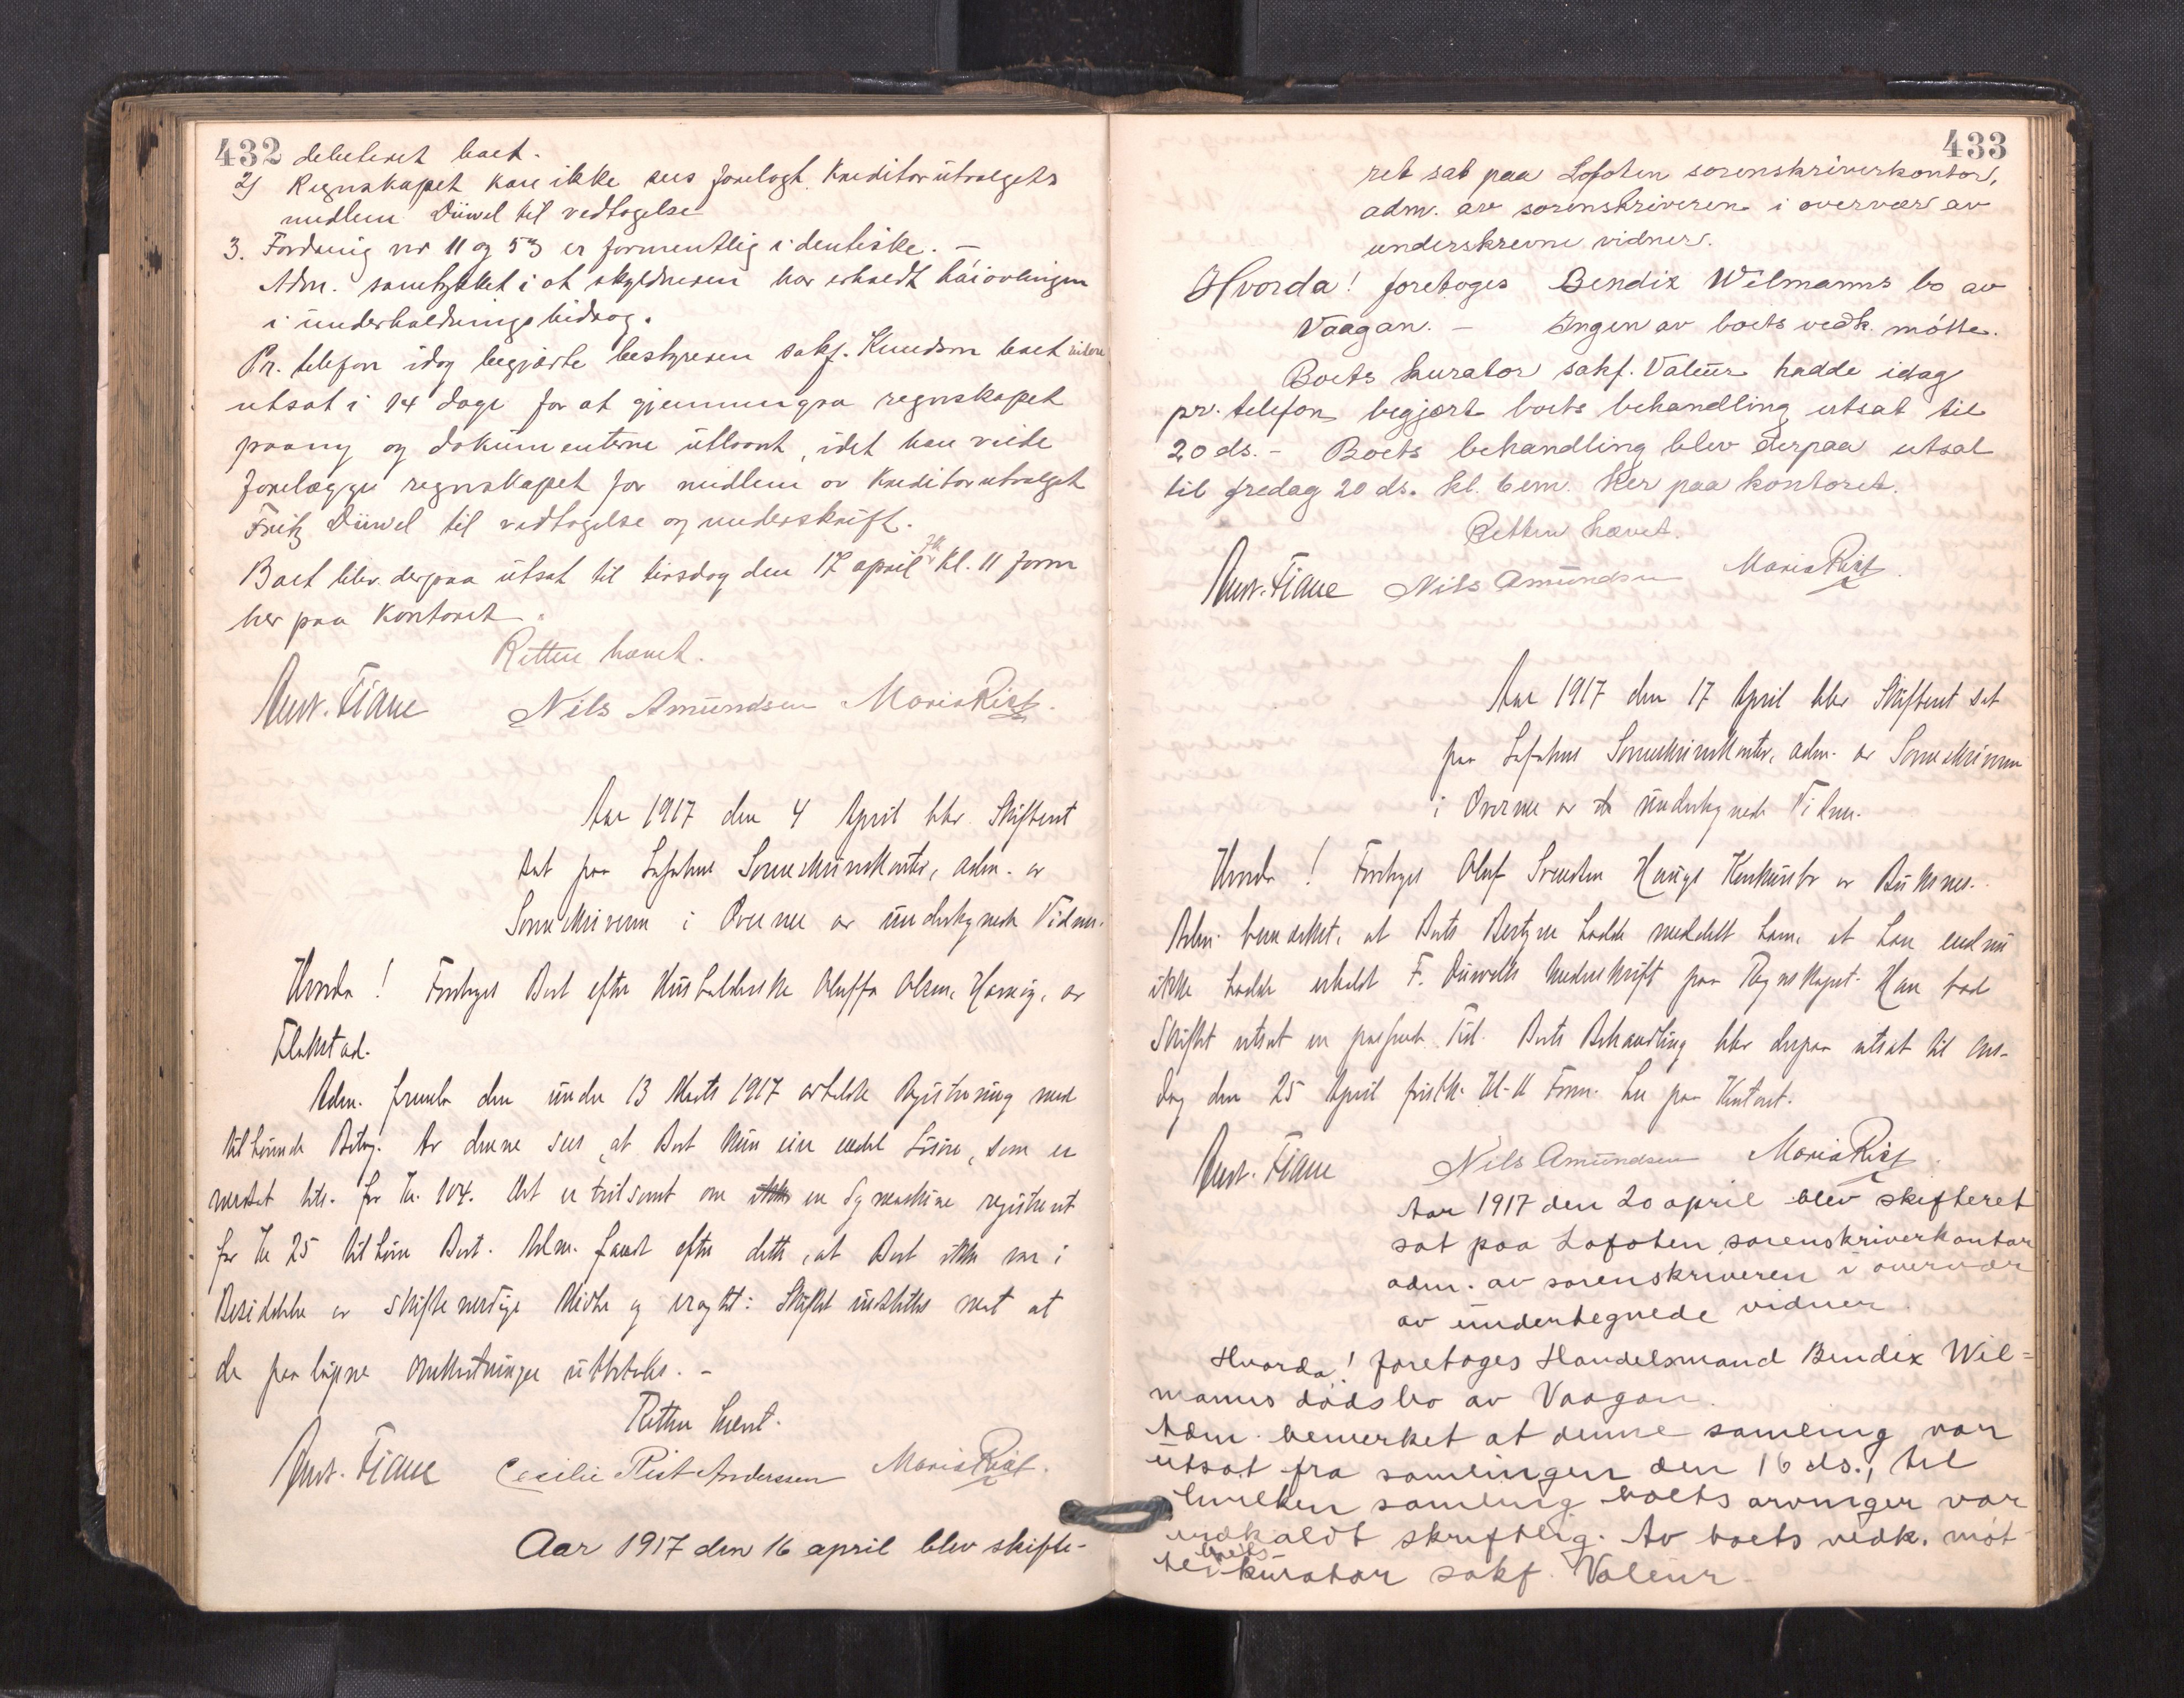 432 debiteret boet.
2) Regnskapet kan ikke sees forelagt Kreditorutvalgets
medlem Düwel til vedtagelse
3. Fordring nr 11 og 53 er formentlig identiske. —
Adm. samtykket i at skyldneren har erholdt
i underholdningsbidrag.
Pr. telefon idag begjærte bestyreren sakf. Knudson boet videre
utsat i 14 dage for at gjennemgaa regnskapet
paany og dokumenterne utlaant, idet han vilde
forelægge regnskapet for medlem av Kreditorutvalget
Fritz Düwel til vedtagelse og underskrift.
Boet blev derpaa utsat til tirsdag den 17 april kl. 11 form
her paa Kontoret.
Retten hævet.
Anst. Fiane Nils Amundsen Maria Rist.
Aar 1917 den 4 April blev Skifteret
sat paa Lofotens Sorenskriverkontor, adm. av
Sorenskriveren i Overvær av undertegnede Vidner.
Hvorda! Foretoges Boet efter Husholderske Oluffa Olsen, av
Flakstad.
Adm. fremla den under 13 Marts 1917 avholdte Registrering med
tilhørende Bilag. Av denne sees, at Boet kun eier endel Løsøre, som er
verdsat til. for Kr. 104. Det er tvilsomt om ikke en Symaskine registrert
for Kr 25 tilhører Boet. Adm. fandt efter dette, at Boet ikke var i
Besiddelse av skifteværdige Midler og avsagt: Skiftet indstilles mot at
de paaløpne Omkostninger utbetales. —
Retten hævet.
Anst. Fiane Cecilie Rist Andersen Maria Rist.
Aar 1917 den 16 april blev skifte-
433
ret sat paa Lofoten sorenskriverkontor,
adm. av sorenskriveren i overvær av
underskrevne vidner.
Hvorda! foretoges Bendix Wilmanns bo av
Vaagan. — Ingen av boets vedk. møtte.
Boets kurator sakf. Valeur hadde idag
pr. telefon begjært boets behandling utsat til
20 ds. — Boets behandling blev derpaa utsat
til fredag 20 ds. kl. 6 em. her paa kontoret.
Retten hævet.
Anst. Fiane Nils Amundsen Maria Rist.
Aar 1917 den 17 April blev Skifteret sat
paa Lofotens Sorenskriverkontor, adm. av Sorenskriveren
i Overvær av de undertegnede Vidner.
Hvorda! Foretoges Oluf Svendsen Haugs Konkursbo av Buksnes.
Adm. bemerket, at Boets Bestyrer hadde meddelt ham, at han endnu
ikke hadde erholdt F. Düwels Underskrift paa Regnskapet. Han bad
Skiftet utsat en passende Tid. Boets Behandling blev derpaa utsat til Ons-
dag den 25 April førstk. Kl. 11 Form. her paa Kontoret.
Anst. Fiane Nils Amundsen Maria Rist.
Aar 1917 den 20 april blev skifteret
sat paa Lofoten sorenskriverkontor
adm. av sorenskriveren i overvær
av undertegnede vidner.
Hvorda! foretoges Handelsmand Bendix Wil=
manns dødsbo av Vaagan.
Adm. bemerket at denne samling var
utsat fra samlingen den 16 ds., til
hvilken samling boets arvinger var
indkaldt skriftlig. Av boets vedk. møt-
te boets kurator sakf. Valeur.